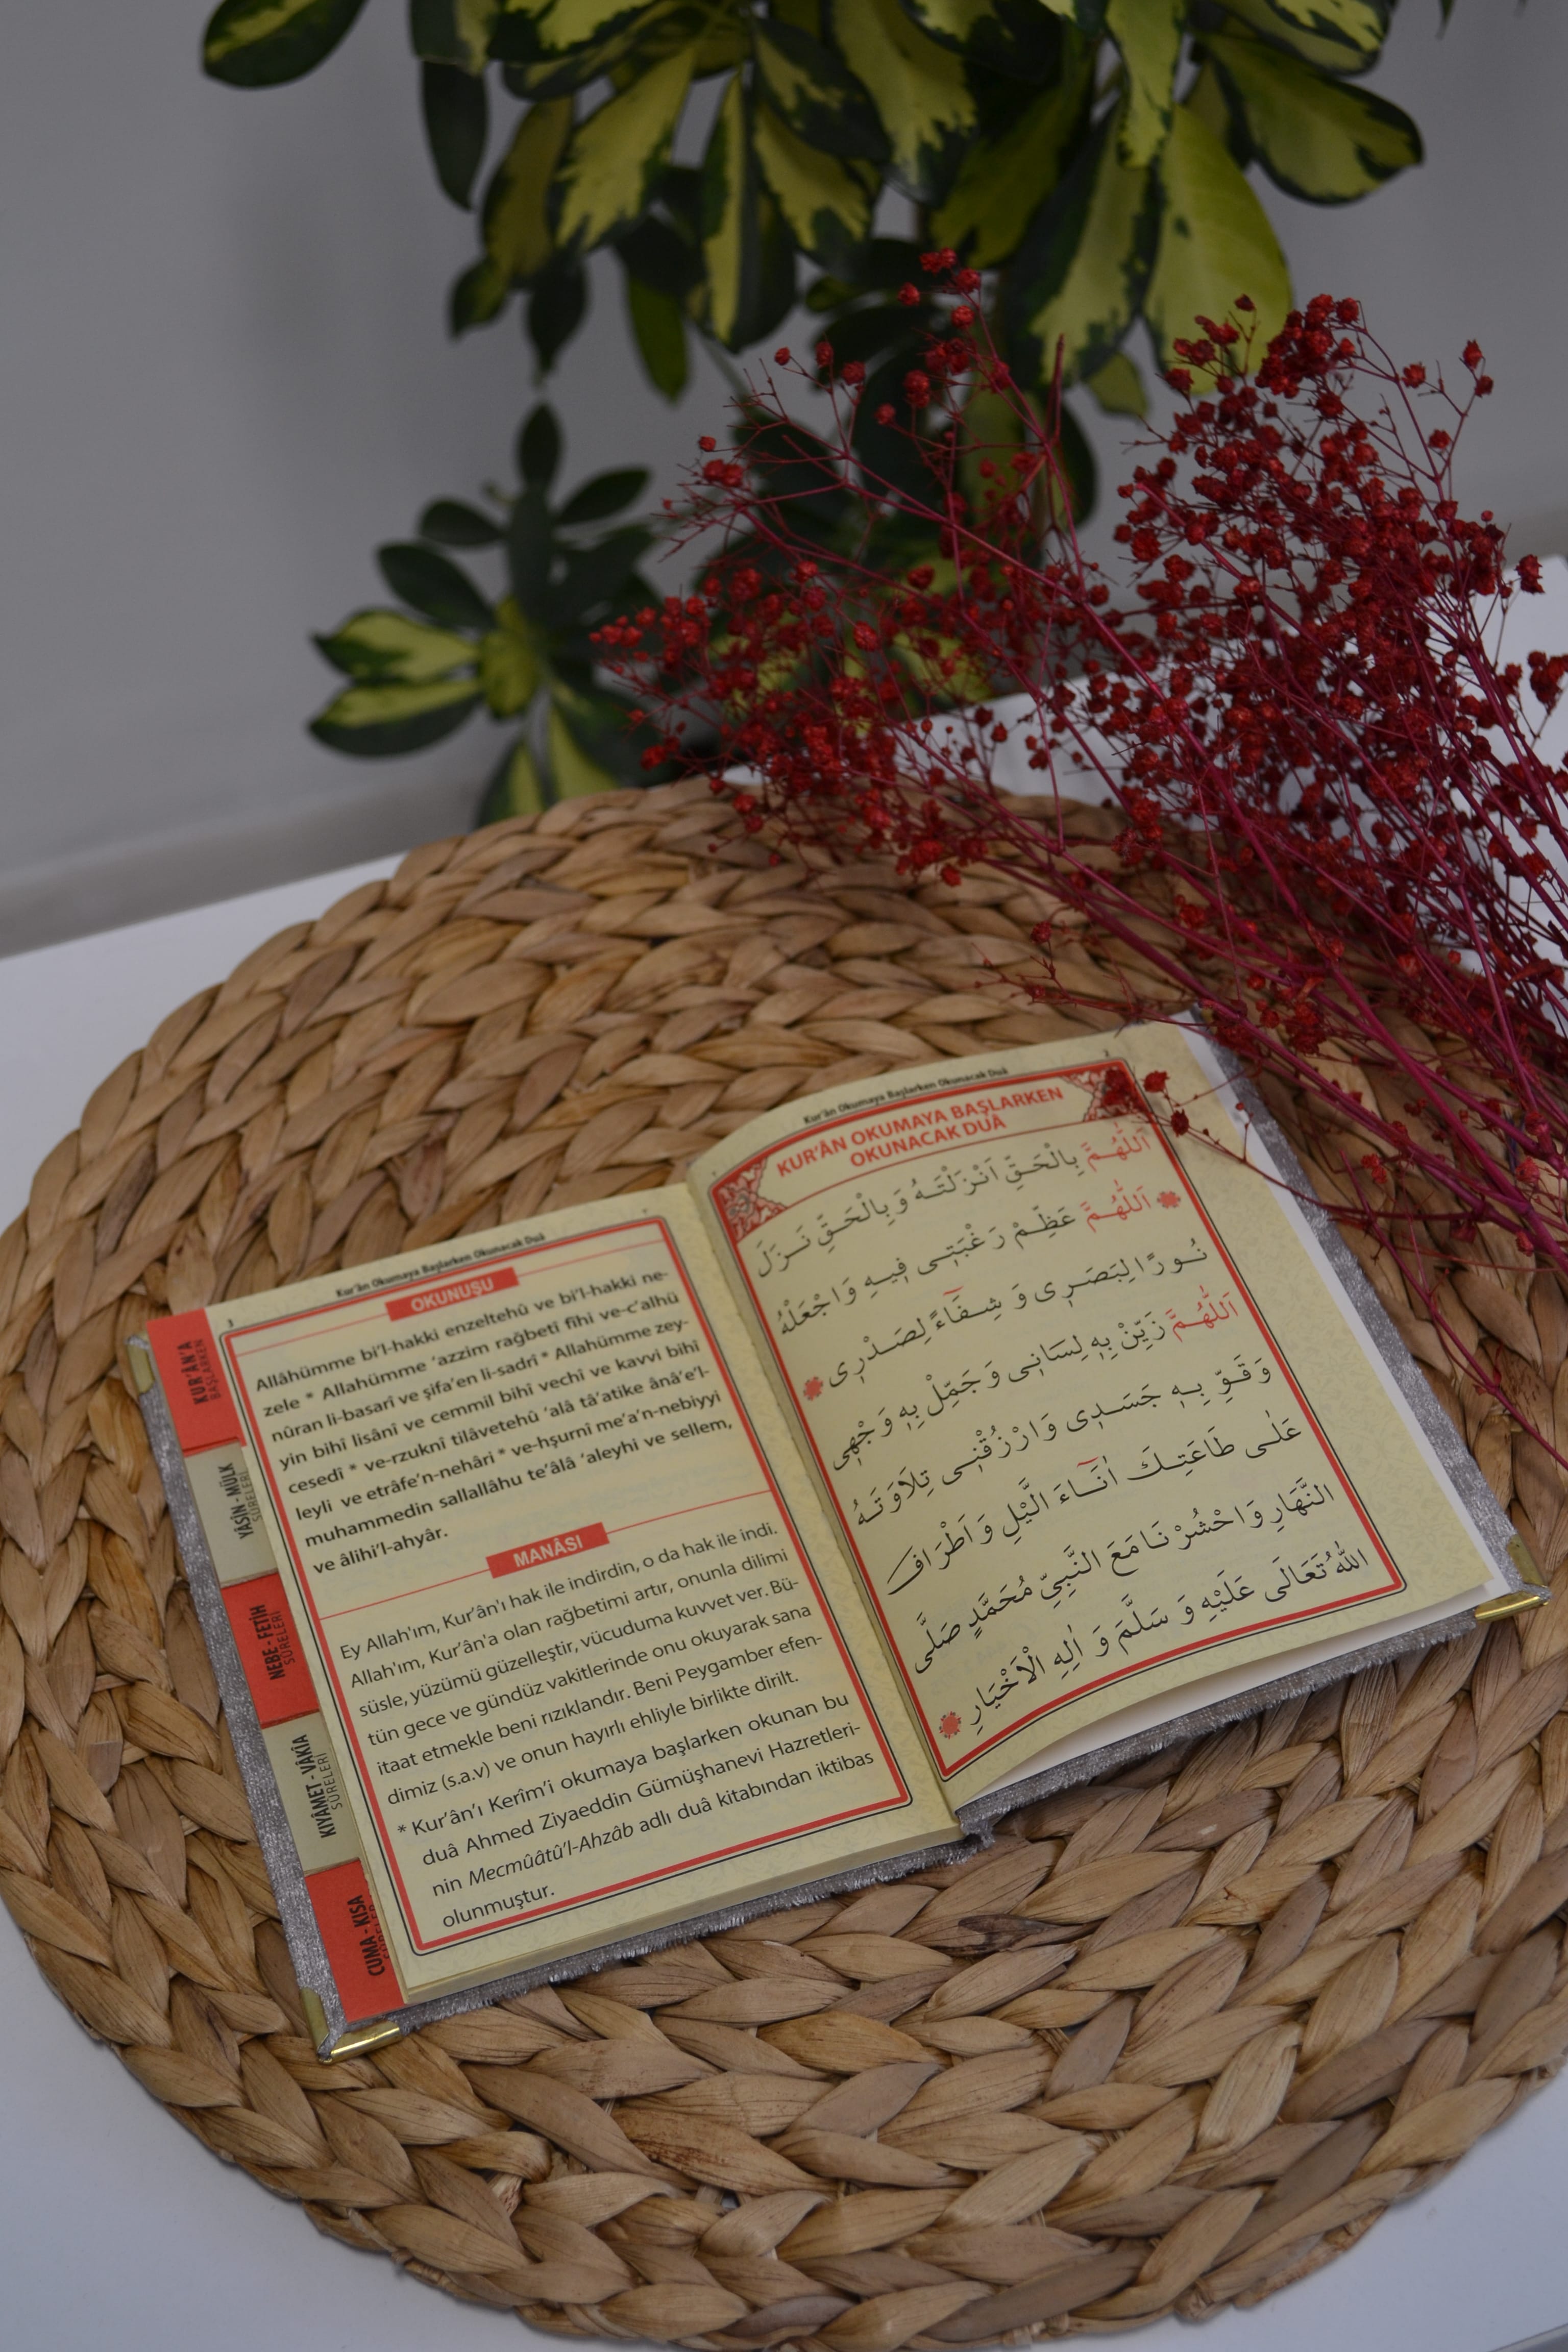 Kur'ân Okumaya Başlarken Okunacak Duâ
KUR'ÂN OKUMAYA BAŞLARKEN
OKUNACAK DUÂ
اَللّٰهُمَّ بِالْحَقِّ اَنْزَلْتَهُ وَبِالْحَقِّ نَزَلَ
اَللّٰهُمَّ عَظِّمْ رَغْبَتِى فِيهِ وَاجْعَلْهُ
نُورًا لِبَصَرِى وَ شِفَٓاءً لِصَدْرِى
اَللّٰهُمَّ زَيِّنْ بِهِ لِسَانِى وَ جَمِّلْ بِهِ وَجْهِى
وَقَوِّ بِهِ جَسَدِى وَارْزُقْنِى تِلَاوَتَهُ
عَلٰى طَاعَتِكَ اٰنَٓاءَ الَّيْلِ وَاَطْرَافَ
النَّهَارِ وَاحْشُرْنَا مَعَ النَّبِيِّ مُحَمَّدٍ صَلَّى
اللّٰهُ تَعَالَى عَلَيْهِ وَ سَلَّمَ وَ اٰلِهِ الْاَخْيَارِ
3
Kur'ân Okumaya Başlarken Okunacak Duâ
OKUNUŞU
Allâhümme bi'l-hakki enzeltehû ve bi'l-hakki ne-
zele * Allahümme 'azzim rağbetî fîhi ve-c'alhü
nûran li-basarî ve şifa'en li-sadrî * Allahümme zey-
yin bihî lisânî ve cemmil bihî vechî ve kavvi bihî
cesedî * ve-rzuknî tilâvetehû 'alâ tâ'atike ânâe'l-
leyli ve etrâfe'n-nehâri * ve-hşurnî me'a'n-nebiyyi
muhammedin sallallâhu te'âlâ 'aleyhi ve sellem,
ve âlihi'l-ahyâr.
MANÂSI
Ey Allah'ım, Kur'ân'ı hak ile indirdin, o da hak ile indi.
Allah'ım, Kur'ân'a olan rağbetimi artır, onunla dilimi
süsle, yüzümü güzelleştir, vücuduma kuvvet ver. Bü-
tün gece ve gündüz vakitlerinde onu okuyarak sana
itaat etmekle beni rızıklandır. Beni Peygamber efen-
dimiz (s.a.v) ve onun hayırlı ehliyle birlikte dirilt.
* Kur'ân'ı Kerîm'i okumaya başlarken okunan bu
duâ Ahmed Ziyaeddin Gümüşhanevi Hazretleri-
nin Mecmûâtû'l-Ahzâb adlı duâ kitabından iktibas
olunmuştur.
KUR'ÂN'A
BAŞLARKEN
YÂSİN - MÜLK
SÛRELERİ
NEBE - FETİH
SÛRELERİ
KIYÂMET - VÂKIA
SÛRELERİ
CUMA - KISA